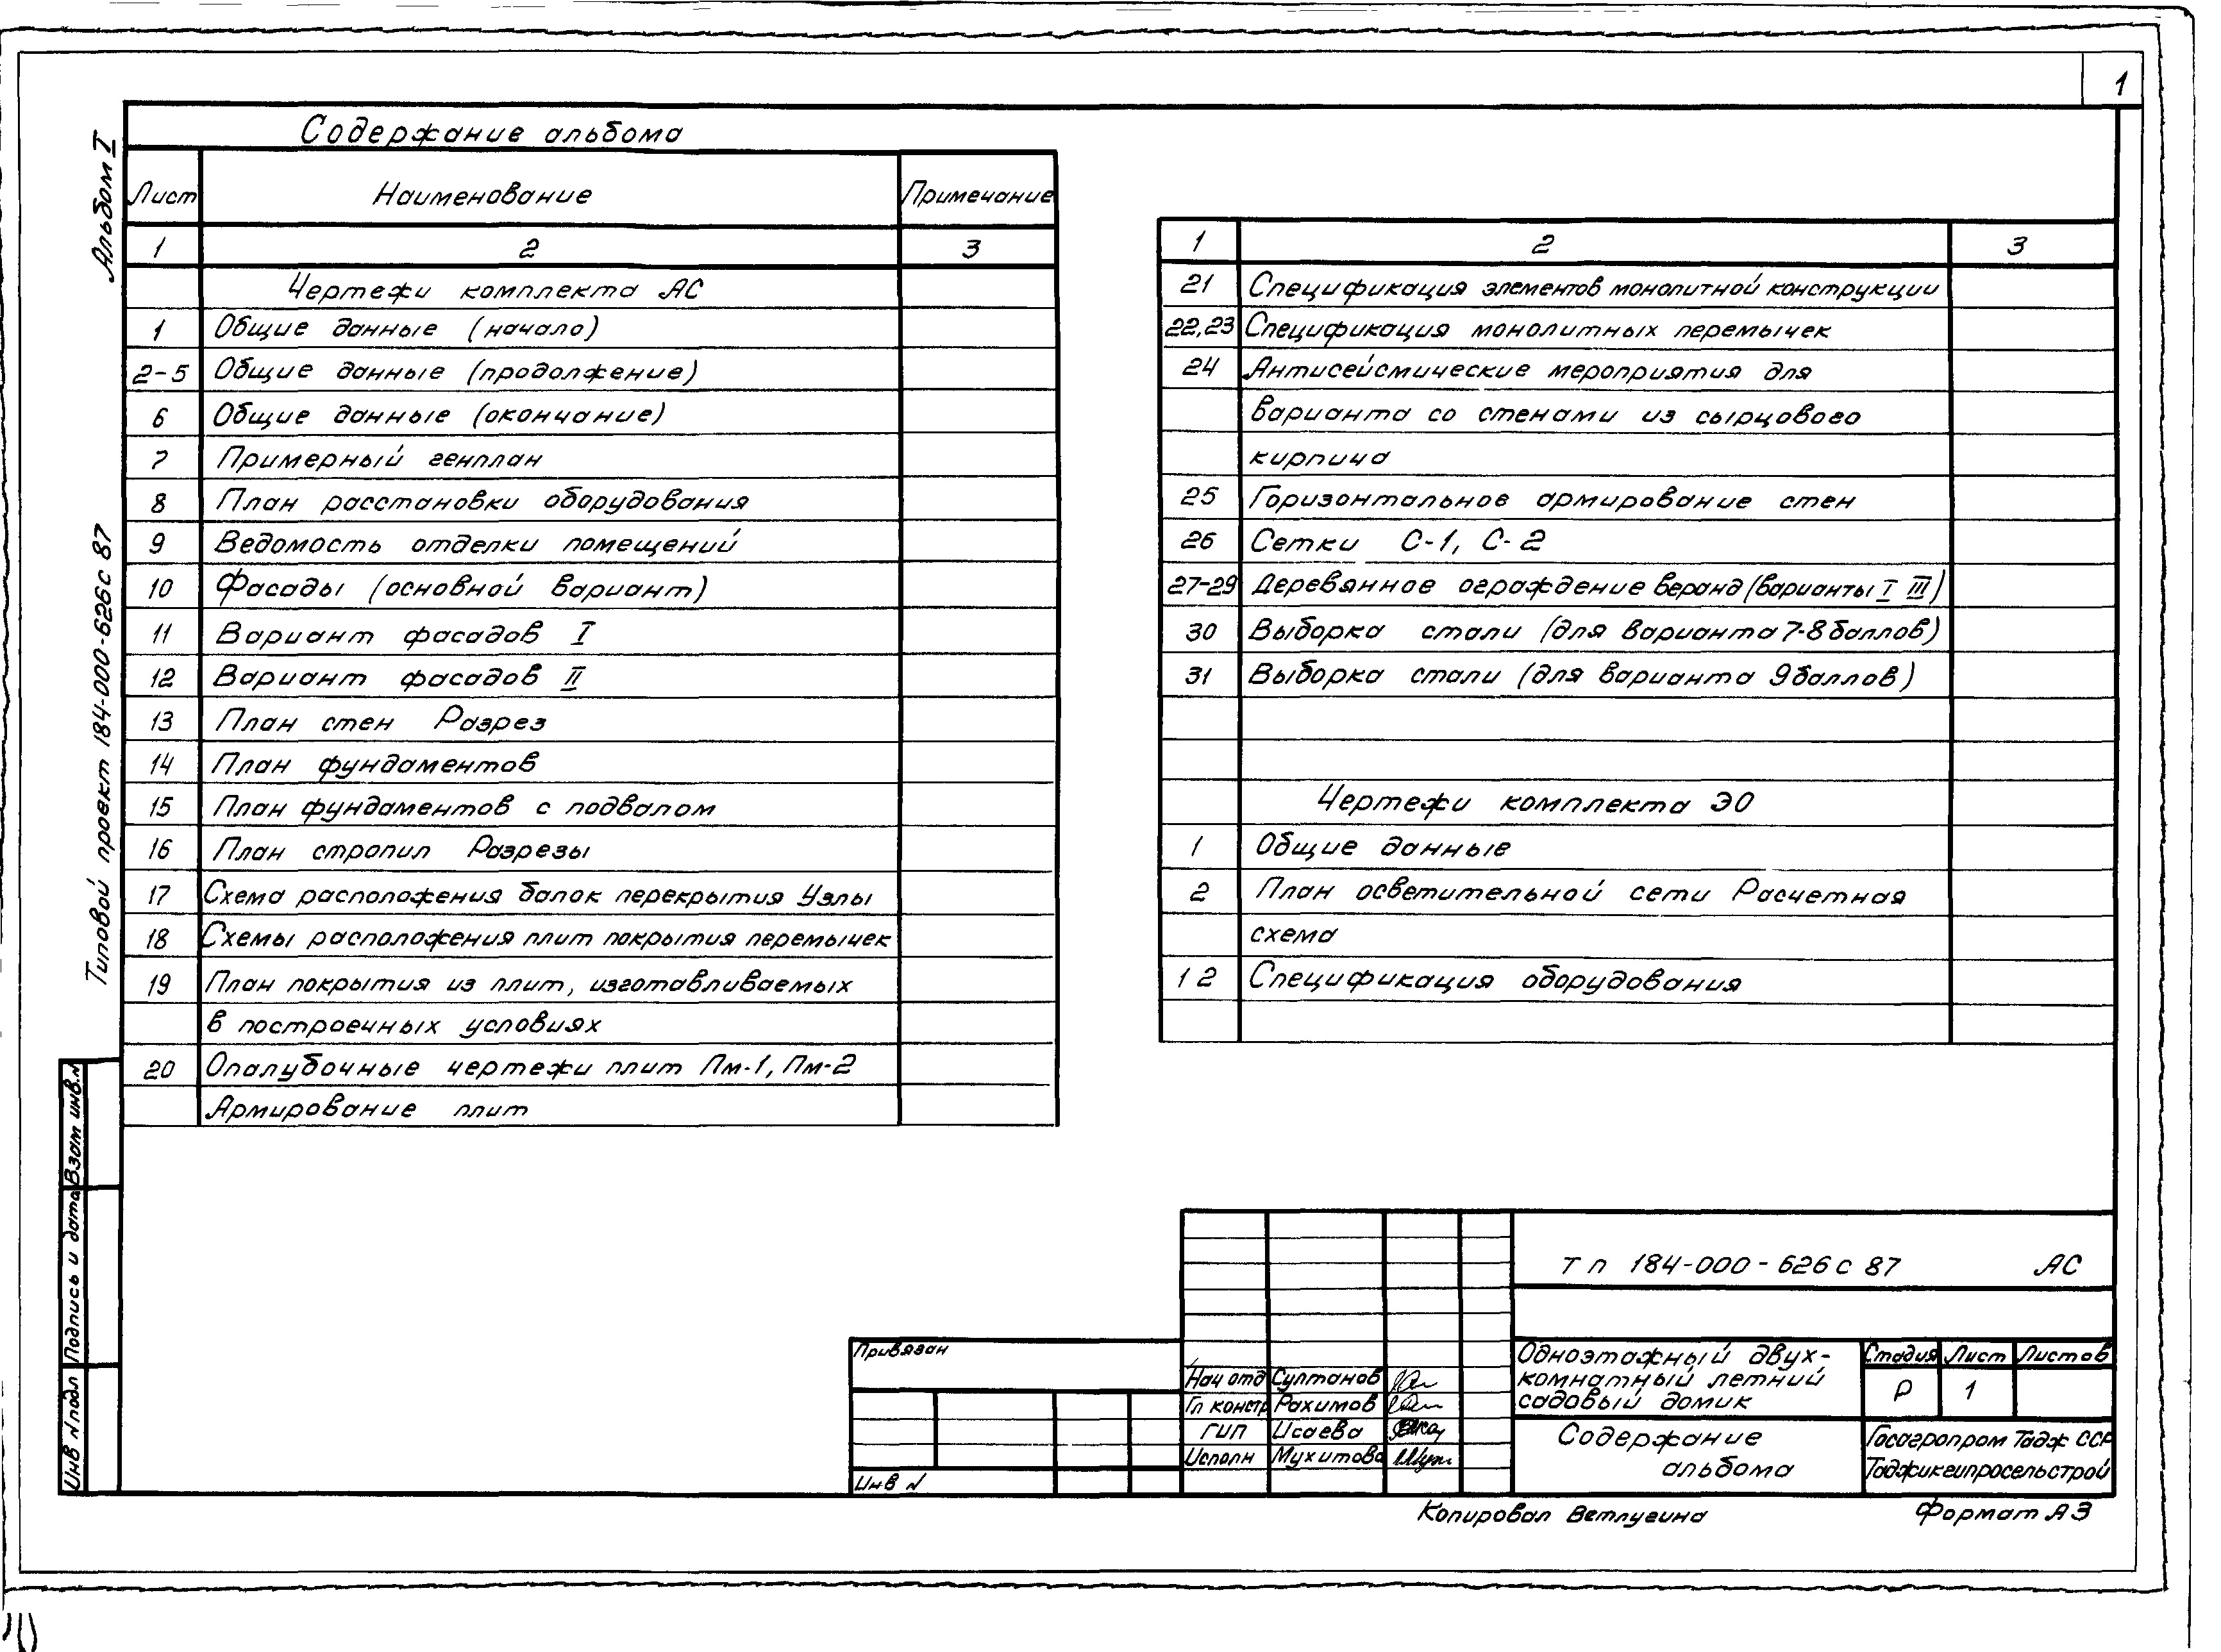 1
Альбом I
Типовой проект 184-000-626с 87
Содержание альбома
Лист Наименование Примечание
1 2 3
Чертежи комплекта АС
1 Общие данные (начало)
2-5 Общие данные (продолжение)
6 Общие данные (окончание)
7 Примерный генплан
8 План расстановки оборудования
9 Ведомость отделки помещений
10 Фасады (основной вариант)
11 Вариант фасадов I
12 Вариант фасадов II
13 План стен Разрез
14 План фундаментов
15 План фундаментов с подвалом
16 План стропил Разрезы
17 Схема расположения балок перекрытия Узлы
18 Схемы расположения плит покрытия перемычек
19 План покрытия из плит, изготавливаемых
в построечных условиях
20 Опалубочные чертежи плит Пм-1, Пм-2
Армирование плит
1 2 3
21 Спецификация элементов монолитной конструкции
22,23 Спецификация монолитных перемычек
24 Антисейсмические мероприятия для
варианта со стенами из сырцового
кирпича
25 Горизонтальное армирование стен
26 Сетки С-1, С-2
27-29 Деревянное ограждение веранд (варианты I III)
30 Выборка стали (для варианта 7-8 баллов)
31 Выборка стали (для варианта 9 баллов)
Чертежи комплекта ЭО
1 Общие данные
2 План осветительной сети Расчетная
схема
1 2 Спецификация оборудования
Взам инв.N
Подпись и дата
Инв N подл
Привязан
Инв N
Нач отд Султанов
Гл констр Рахимов
ГИП Исаева
Исполн Мухитова
т п 184-000-626 с 87 АС
Одноэтажный двух-
комнатный летний
садовый домик
Стадия Лист Листов
Р 1
Содержание
альбома
Госагропром Тадж ССР
Таджикгипросельстрой
Копировал Ветлугина Формат А3